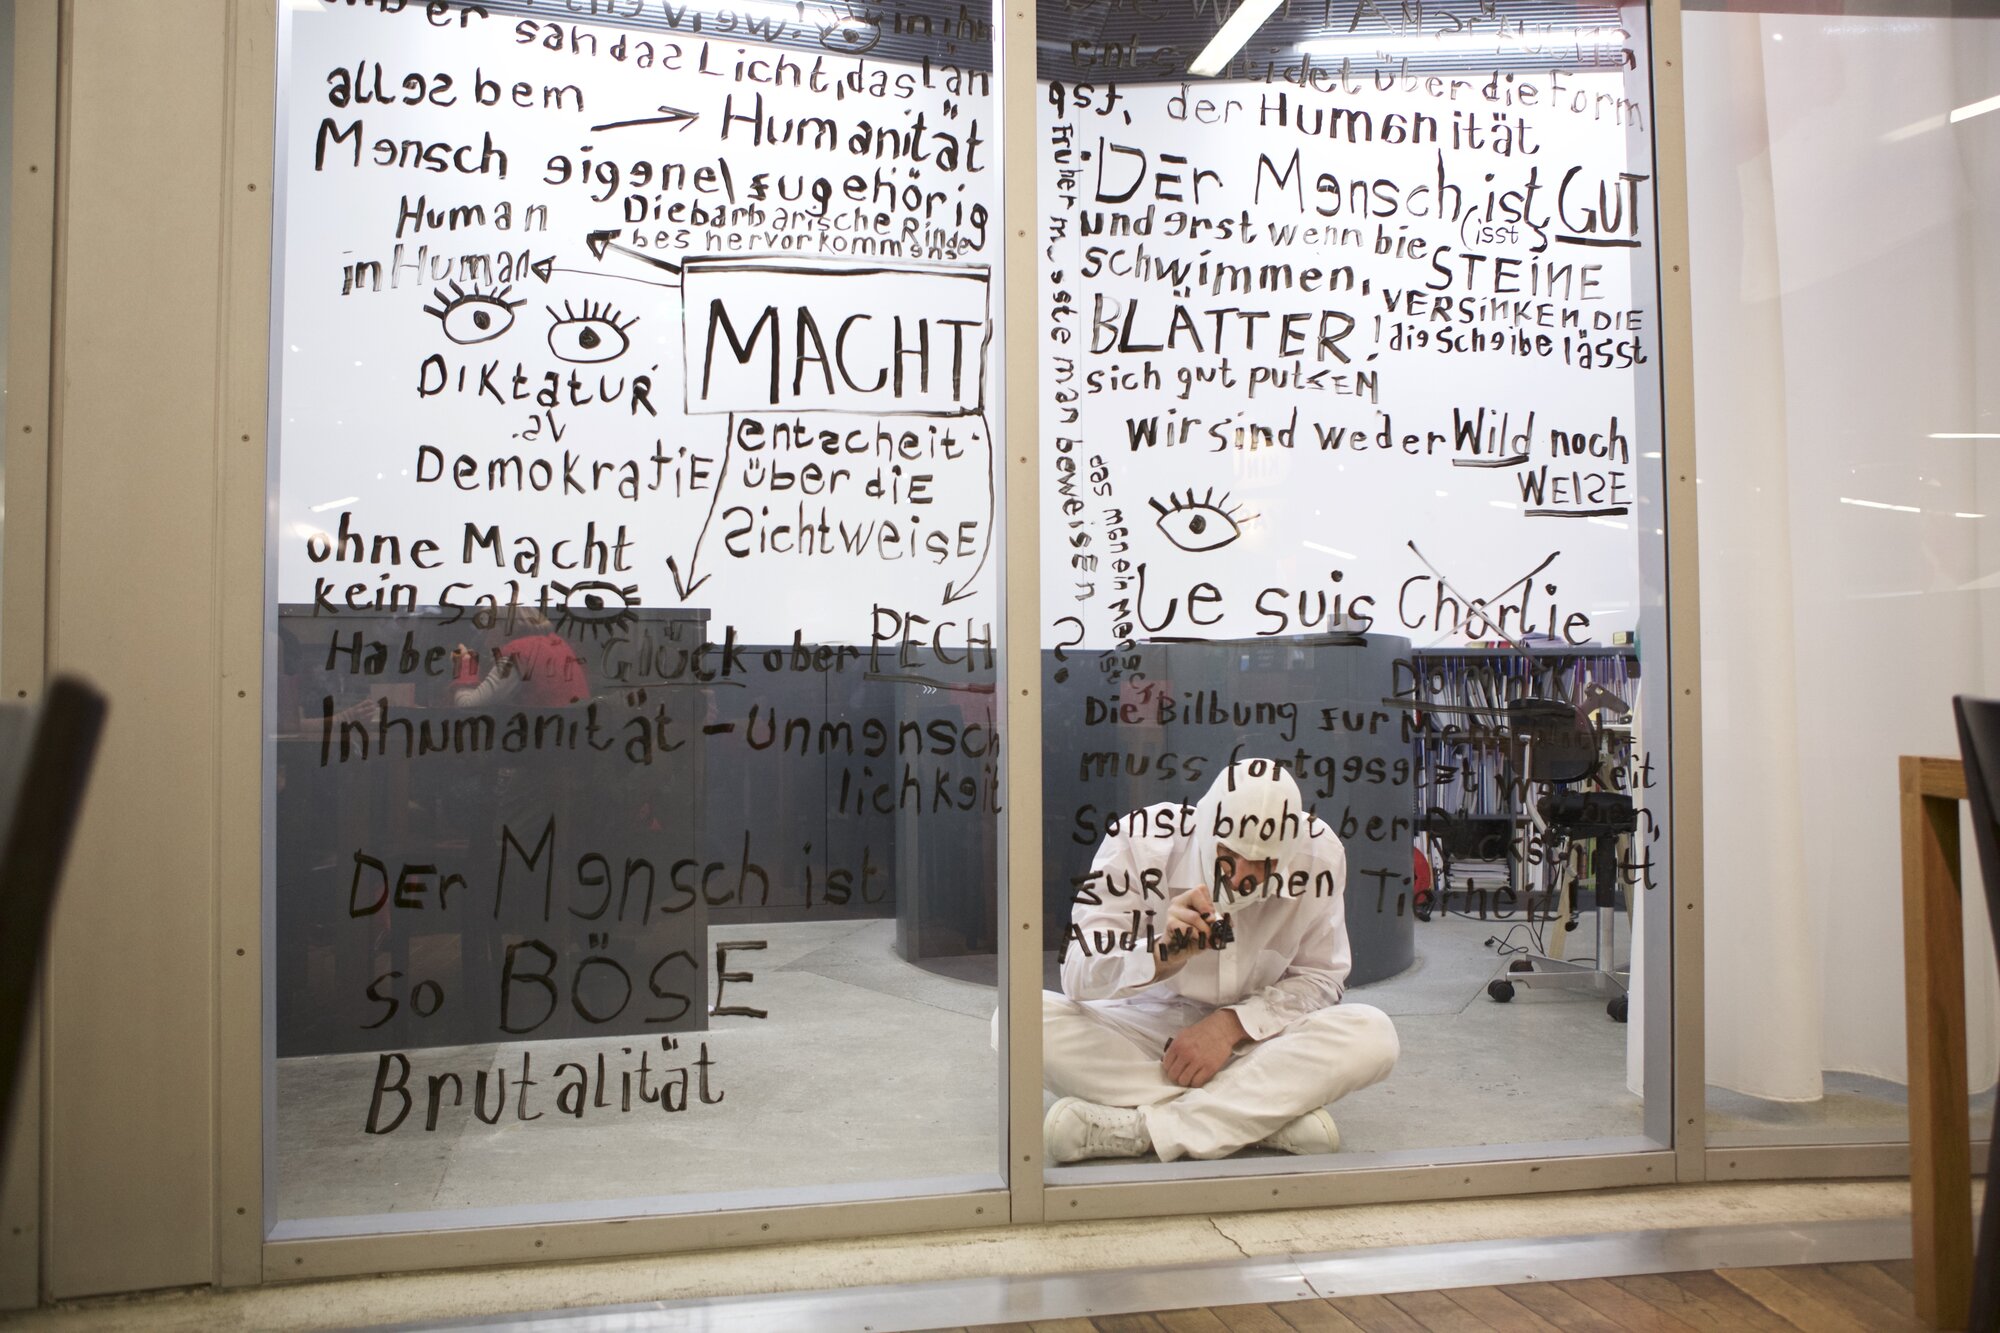 the view!
sah das Licht, das
alles bem
→ Humanität
Mensch eigene zugehörig
Human
Die barbarische Rinde
bes hervorkommens
in Human
MACHT
Diktatur
vs.
Demokratie
entscheit
über die
Sichtweise
ohne Macht
kein Saft
Haben wir Glück ober PECH
Inhumanität - Unmensch
lichkeit
DEr Mensch ist
so BÖSE
Brutalität
über die Form
der Humanität
DEr Mensch ist GUT
(isst)
und erst wenn bie
schwimmen,
STEINE
BLÄTTER!
VERSINKEN DIE
die Scheibe lässt
sich gut putzen
Früher musste man beweisen
das man ein Mensch ist
?
wir sind weder Wild noch
WEISE
Je suis Charlie
Dominik
Die Bilbung zur Menschlich=
muss fortgesetzt keit
Sonst broht ber Rückschritt
zur Rohen Tierheit!
Audi, vid